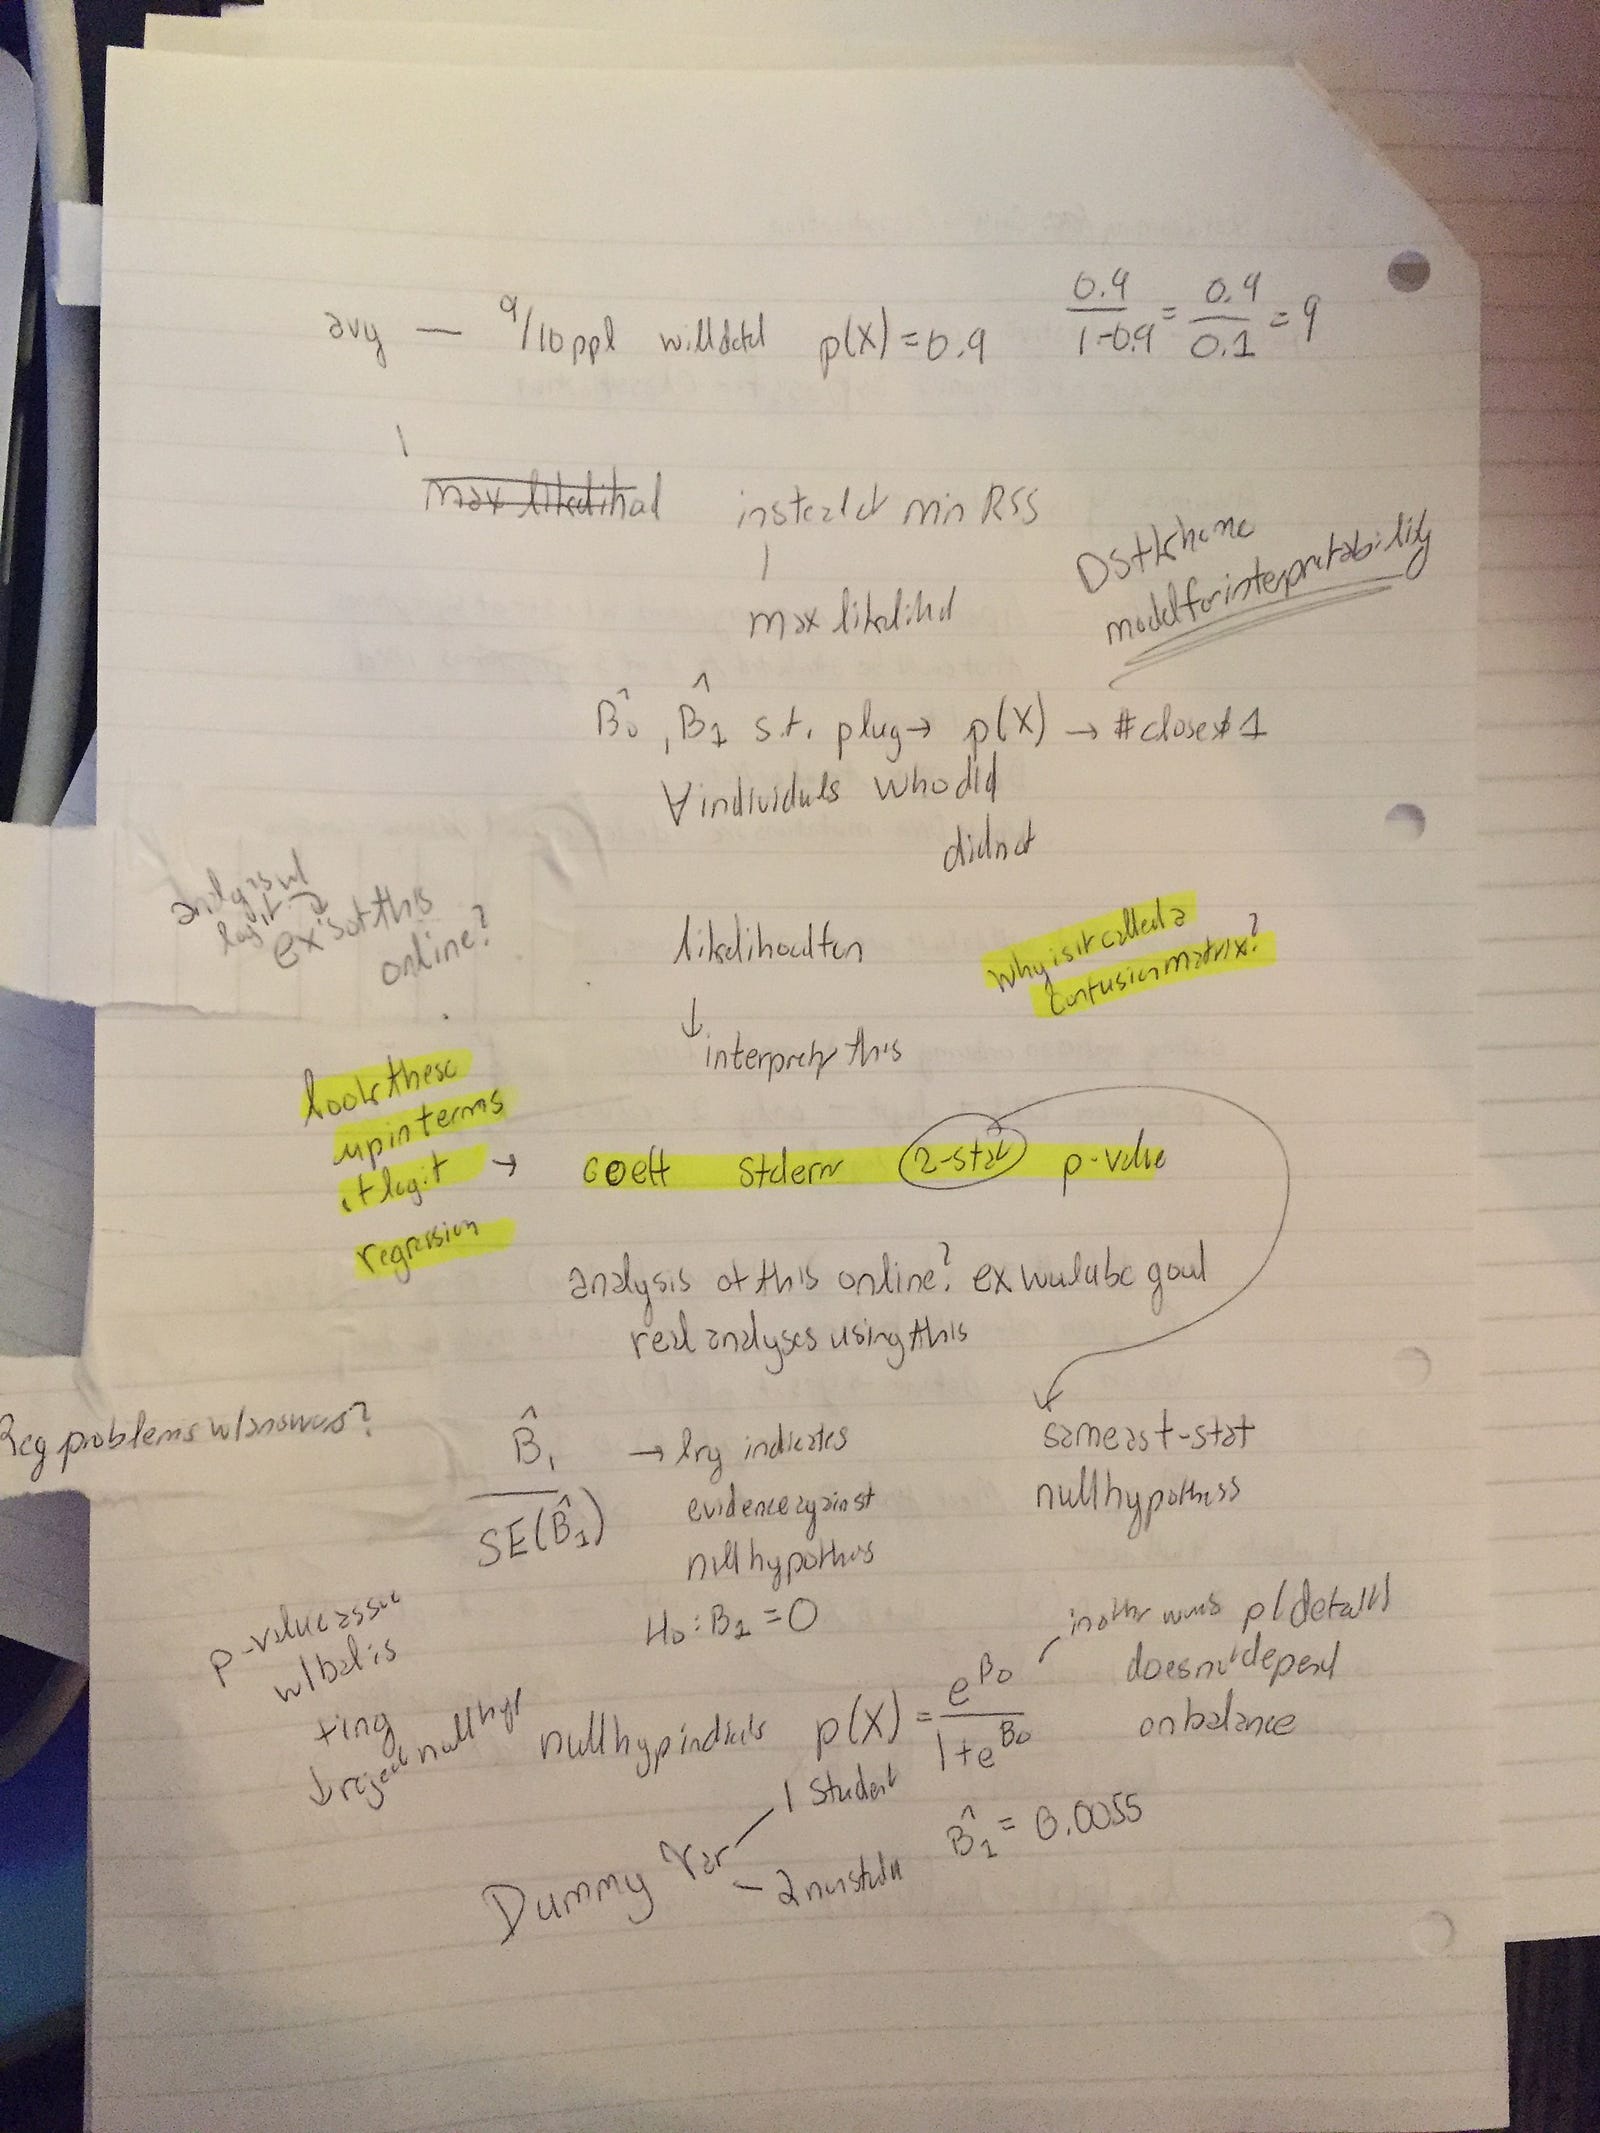 avg — 9/10 ppl will p(x) = 0.9 0.9/1-0.9 = 0.9/0.1 = 9
max likelihod instead of min RSS
max likelihd
DS take home
model for interpretability
B̂0, B̂1 s.t. plug → p(x) → # close to 1
∀ individuls who did
didnot
analysis w/
logit a
ex's of this
online?
likelihood fcn
Why is it called a
confusion matrix?
↓ interpret this
look these
up in terms
of logit →
regression
Coeff Std err Z-stat p-value
analysis of this online? ex would be good
real analyses using this
Reg problems w/answers?
B̂1 / SE(B̂1)
→ lrg indicates
evidence against
null hypothes
H0: B1 = 0
same as t-stat
null hypothesis
p-value assoc
w/ bal is
ting
↓ reject null hyp
null hyp indicats p(x) = e^B0 / 1+e^B0
in other words p(default)
does not depend
on balance
Dummy Var
1 student
2 nonstudn
B̂1 = 0.0055